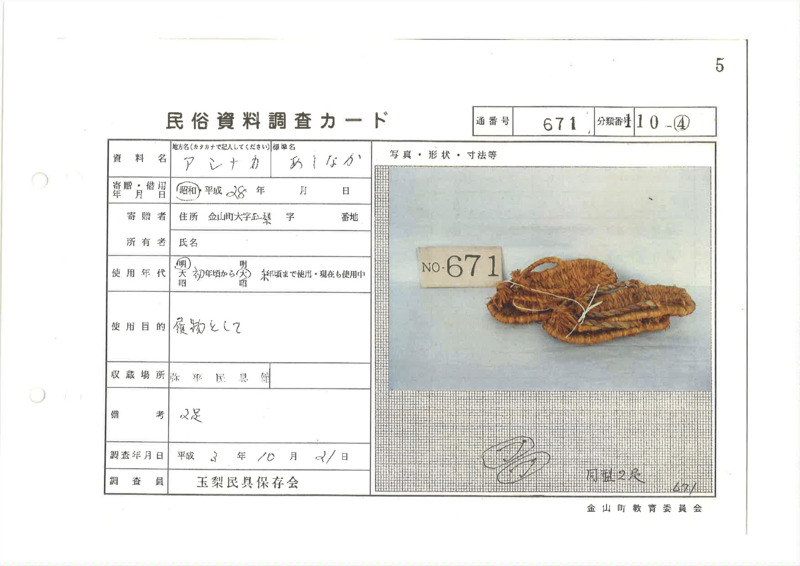 5
民俗資料調査カード
通番号 671 分類番号 110-④
資料名 地方名(カタカナで記入してください) アシナカ 標準名 あしなか
写真・形状・寸法等
寄贈・借用年月日 昭和・平成 28 年 月 日
寄贈者 住所 金山町大字玉梨 字 番地
所有者 氏名
使用年代 明大昭 初年頃から 明大昭 年頃まで使用・現在も使用中
使用目的 履物として
収蔵場所 民具館
備考 2足
調査年月日 平成 3 年 10 月 21 日
調査員 玉梨民具保存会
NO.671
同型2足
671
金山町教育委員会